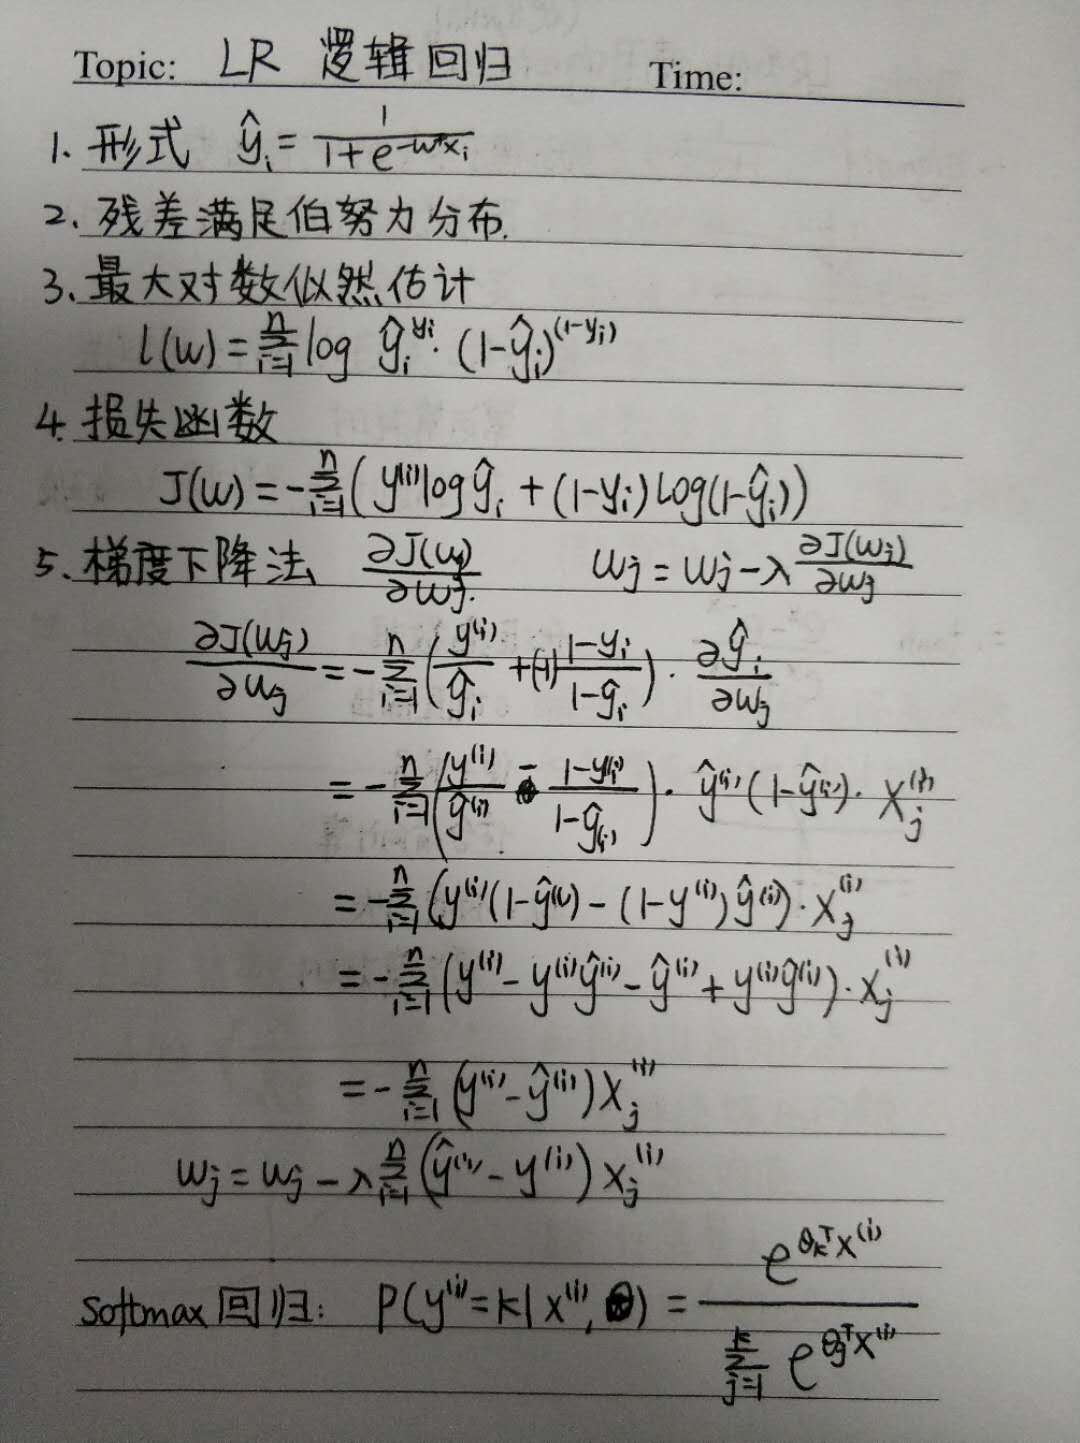 Topic: LR 逻辑回归 Time:
1. 形式 ŷᵢ = 1 / (1+e^(-wᵀxᵢ))
2. 残差满足伯努力分布.
3. 最大对数似然估计
l(w) = Σ_{i=1}^{n} log ŷᵢ^{yᵢ} · (1-ŷᵢ)^{(1-yᵢ)}
4. 损失函数
J(w) = -Σ_{i=1}^{n} ( y^{(i)} log ŷᵢ + (1-yᵢ) log(1-ŷᵢ) )
5. 梯度下降法 ∂J(wⱼ)/∂wⱼ wⱼ = wⱼ - λ ∂J(wⱼ)/∂wⱼ
∂J(wⱼ)/∂wⱼ = -Σ_{i=1}^{n} ( y^{(i)}/ŷᵢ + (-1) (1-yᵢ)/(1-ŷᵢ) ) · ∂ŷᵢ/∂wⱼ
= -Σ_{i=1}^{n} ( y^{(i)}/ŷ^{(i)} - (1-y^{(i)})/(1-ŷ_{(i)}) ) · ŷ^{(i)} (1-ŷ^{(i)}) · xⱼ^{(i)}
= -Σ_{i=1}^{n} ( y^{(i)} (1-ŷ^{(i)}) - (1-y^{(i)}) ŷ^{(i)} ) · xⱼ^{(i)}
= -Σ_{i=1}^{n} ( y^{(i)} - y^{(i)}ŷ^{(i)} - ŷ^{(i)} + y^{(i)}ŷ^{(i)} ) · xⱼ^{(i)}
= -Σ_{i=1}^{n} ( y^{(i)} - ŷ^{(i)} ) xⱼ^{(i)}
wⱼ = wⱼ - λ Σ_{i=1}^{n} ( ŷ^{(i)} - y^{(i)} ) xⱼ^{(i)}
softmax 回归: P(y^{(i)} = k | x^{(i)}, θ) = e^{θₖᵀx^{(i)}} / Σ_{j=1}^{k} e^{θⱼᵀx^{(i)}}